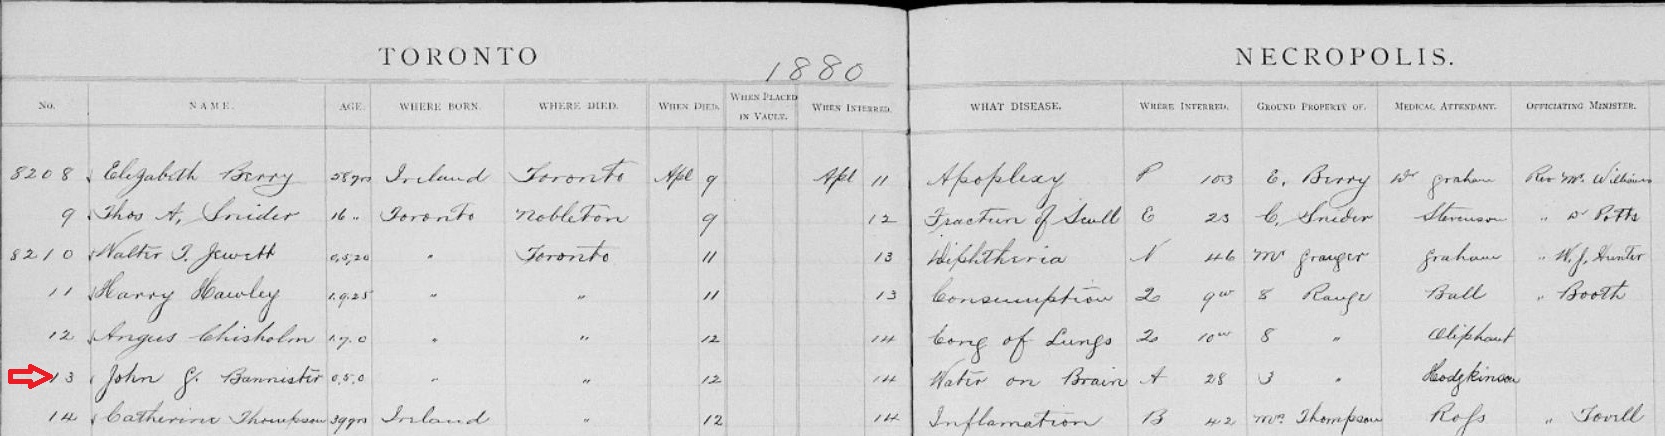 TORONTO NECROPOLIS.
1880
No. NAME. AGE. WHERE BORN. WHERE DIED. WHEN DIED. WHEN PLACED IN VAULT. WHEN INTERRED. WHAT DISEASE. WHERE INTERRED. GROUND PROPERTY OF. MEDICAL ATTENDANT. OFFICIATING MINISTER.
8208 Elizabeth Berry 58 yrs Ireland Toronto Apl 9 Apl 11 Apoplexy P 103 E. Berry Dr Graham Rev Mr. Williams
9 Thos A. Snider 16 " Toronto Nobleton 9 12 Fracture of Scull E 23 C. Snider Stevenson " Dr Potts
8210 Walter T. Jewett 0.5.20 " Toronto 11 13 Diphtheria N 46 Mr Granger Graham " W. J. Hunter
11 Harry Hawley 1.9.25 " " 11 13 Consumption 2 9w 8 Range Ball " Booth
12 Angus Chisholm 1.7.0 " " 12 14 Cong of Lungs 2 10w 8 " Oliphant
13 John G. Bannister 0.5.0 " " 12 14 Water on Brain A 28 3 " Hodgkinson
14 Catherine Thompson 39 yrs Ireland " 12 14 Inflamation B 42 Mrs Thompson Ross " Tovell